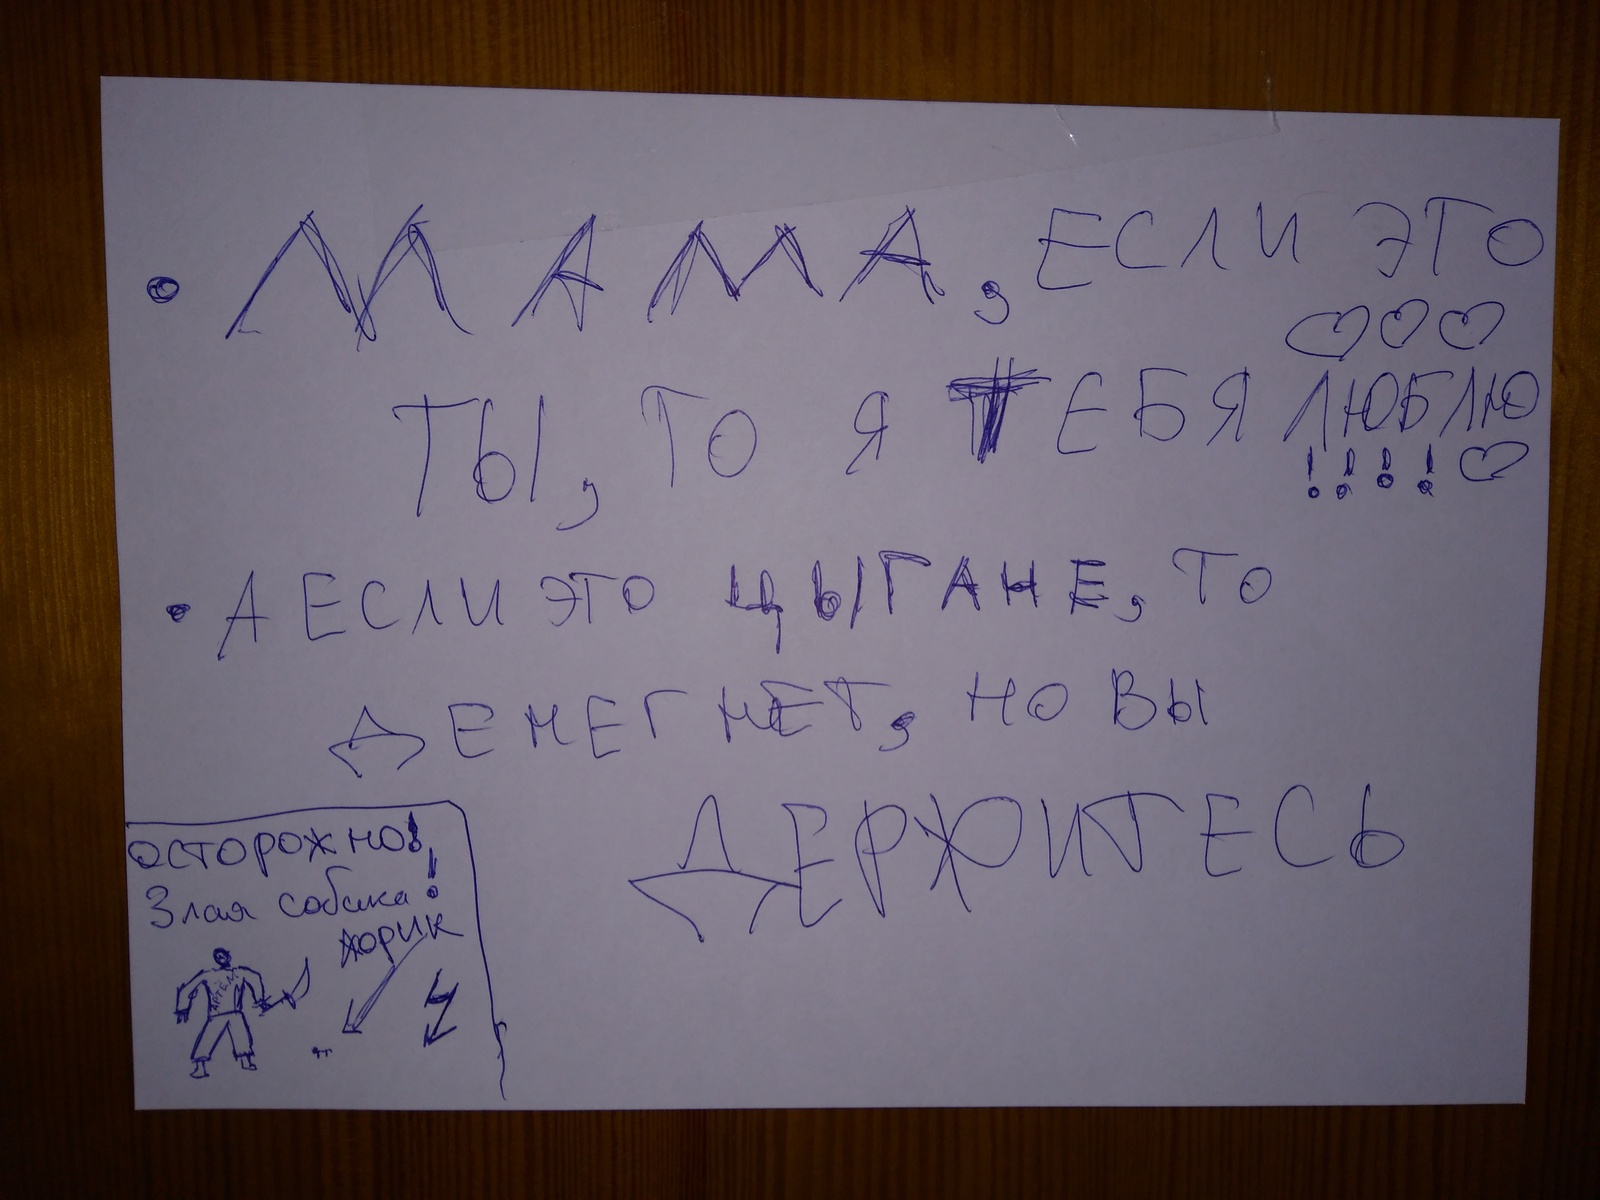 • МАМА, ЕСЛИ ЭТО
ТЫ, ТО Я ТЕБЯ ЛЮБЛЮ
!!!!
• А ЕСЛИ ЭТО ЦЫГАНЕ, ТО
ДЕНЕГ НЕТ, НО ВЫ
ДЕРЖИТЕСЬ
ОСТОРОЖНО!
Злая собака!
ЖОРИК
АРТЁМ